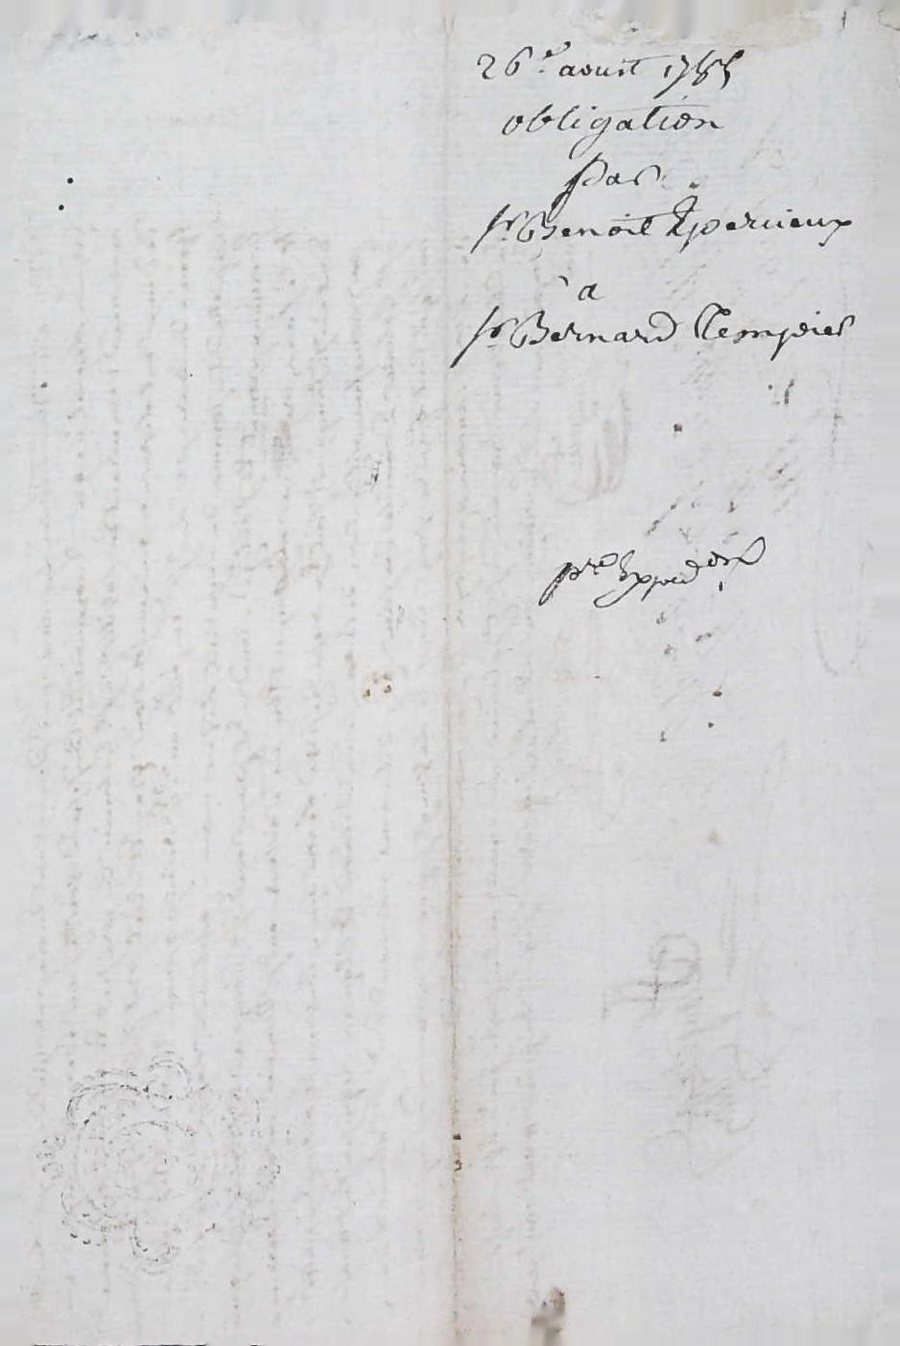 26.e aoust 1785
obligation
par
sr. Benoit Epercieux
à
sr. Bernard Tempier
pre. Exped.on